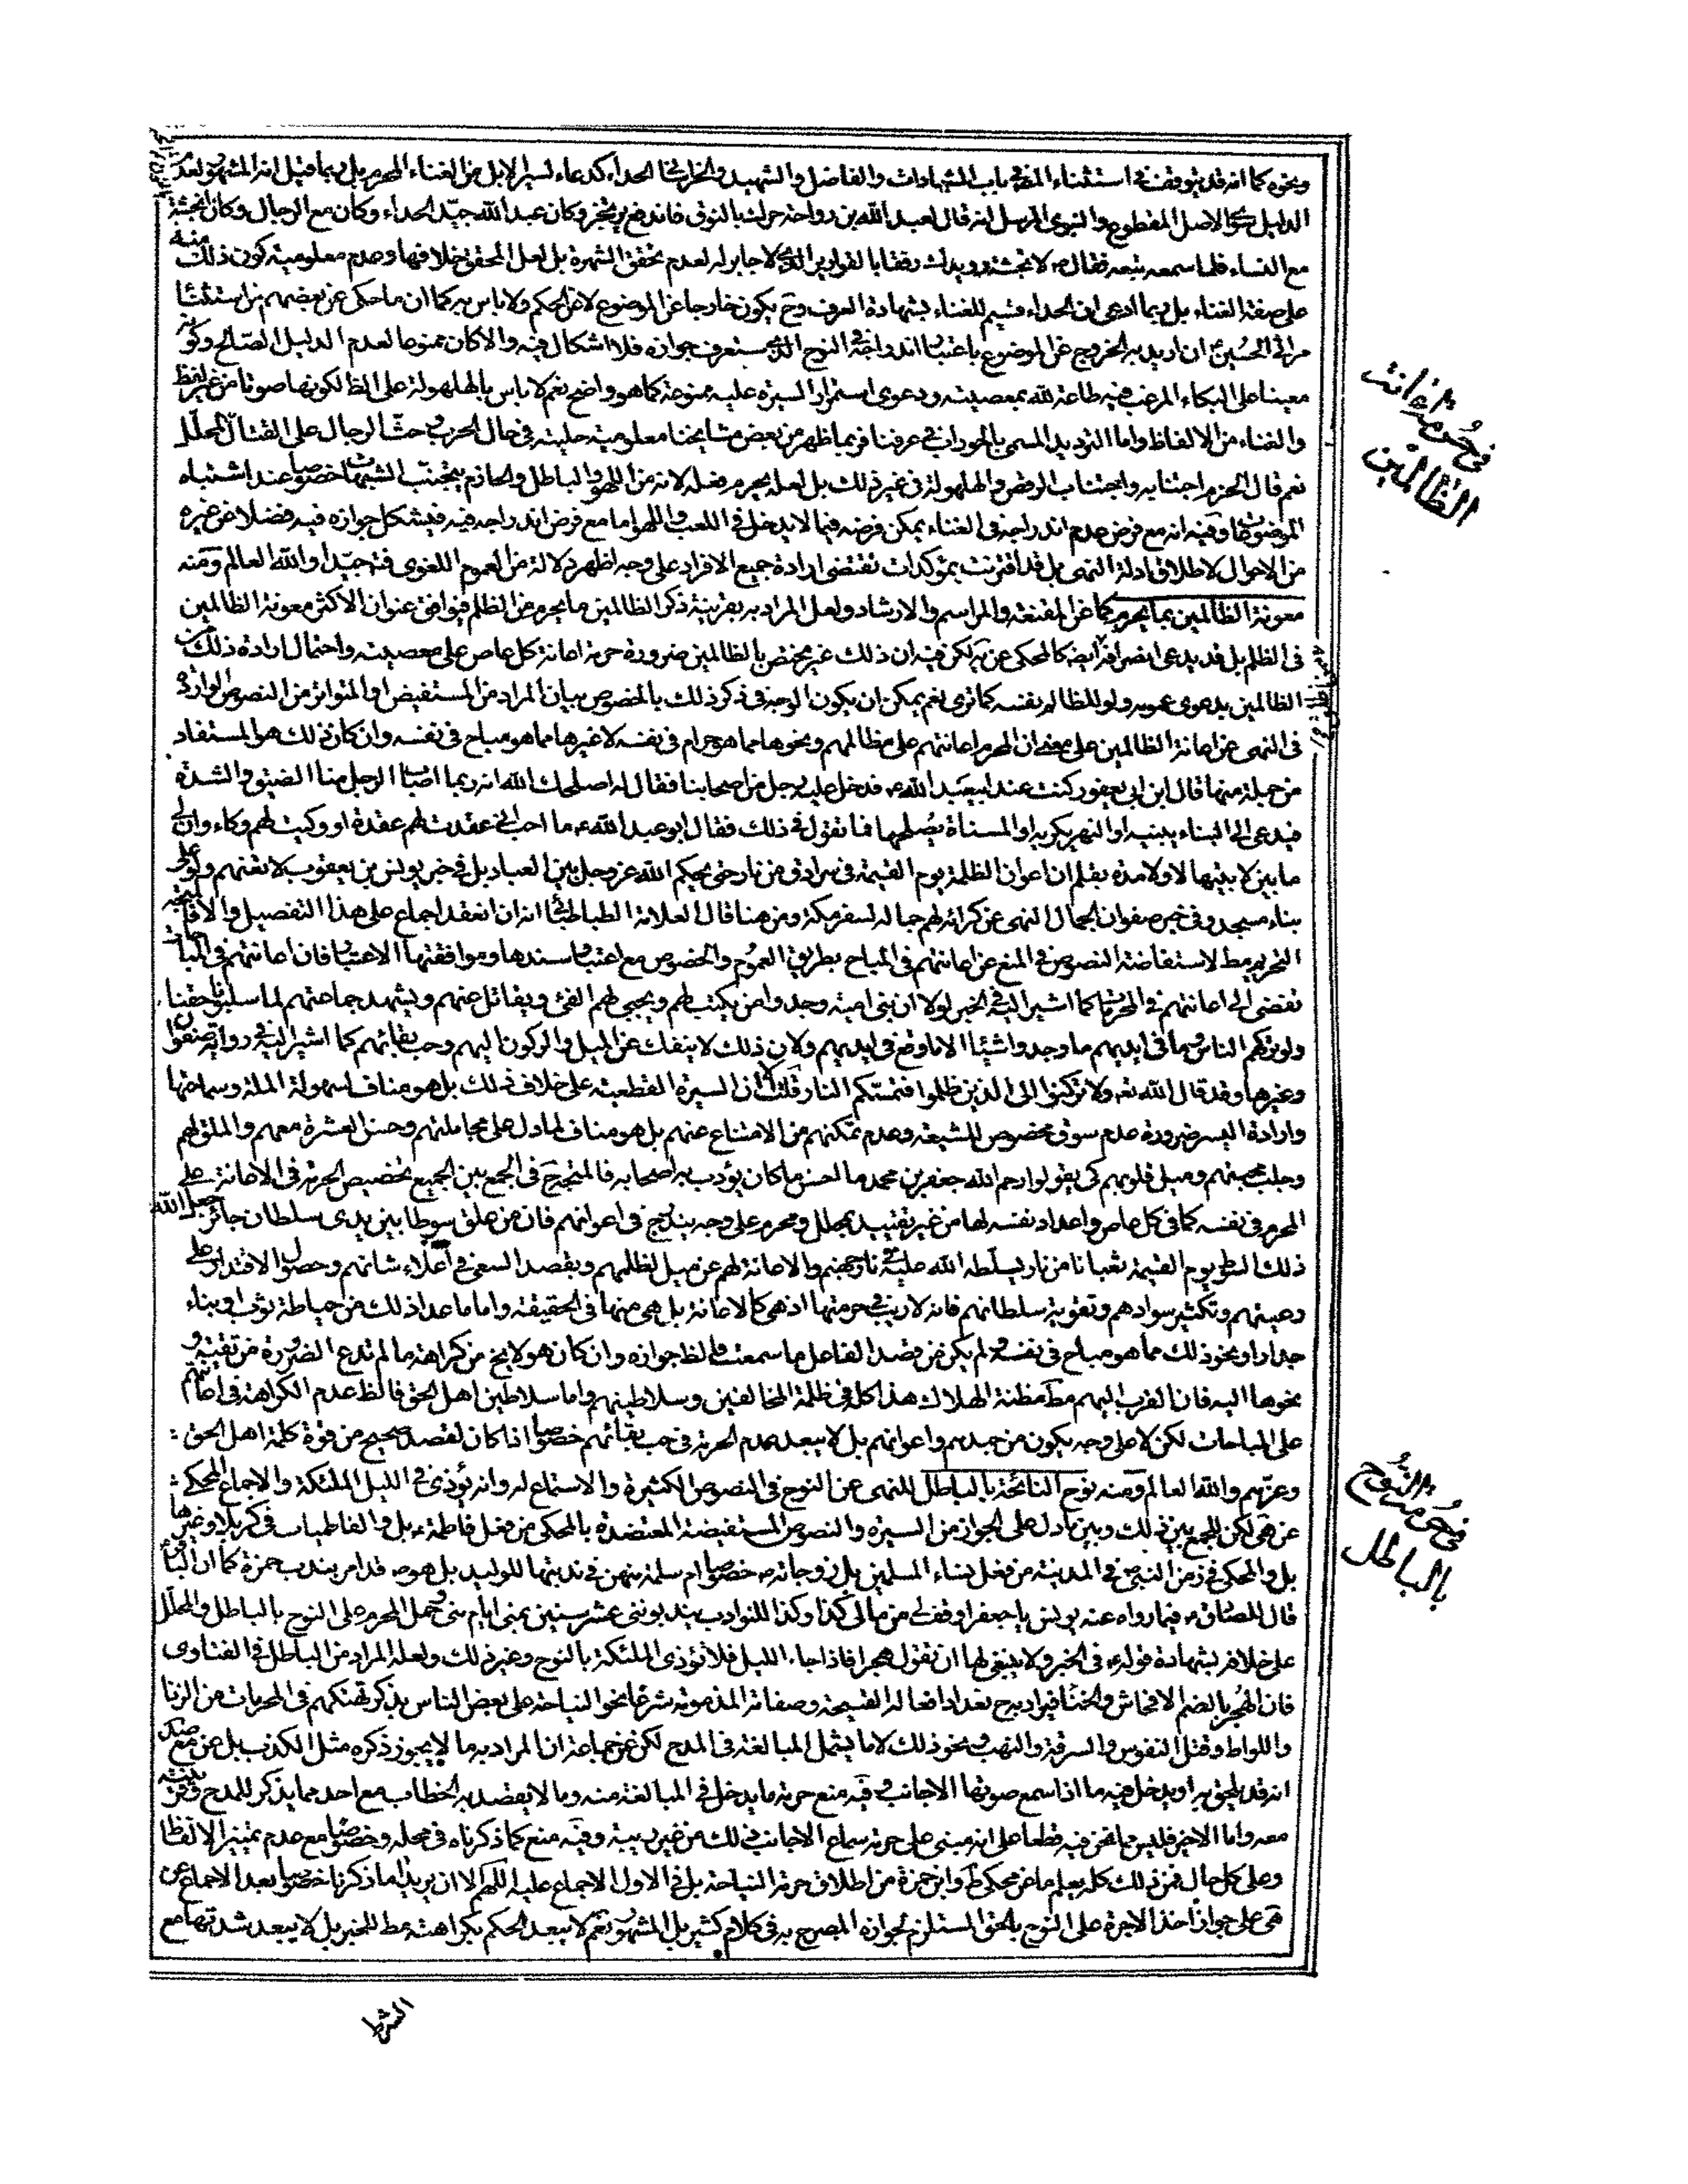 ونحوه كما انه قد يتوقف في استثناء المص في باب الشهادات والفاضل والشهيد والخراساني الحداء كدعاء لسير الابل من الغناء المحرم بل ربما قيل انه المشهور لعدم
الدليل سوى الاصل المقطوع والنبوي المرسل انه قال لعبد الله بن رواحة حرك بالنوق فاندفع يرتجز وكان عبد الله جيد الحداء وكان مع الرجال وكان انجشة
مع النساء فلما سمعه تبعه فقال ص لانجشة رويدك رفقا بالقوارير الذي لا جابر له لعدم تحقق الشهرة بل لعل المحقق خلافها وعدم معلومية كون ذلك منه
على صفة الغناء بل ربما ادعى ان الحداء قسيم للغناء بشهادة العرف وح يكون خارجا عن الموضوع لا عن الحكم ولا باس به كما ان ما حكى عن بعضهم من استثناء
مراثي الحسين ع ان اريد به الخروج عن الموضوع باعتبار اندراجه في النوح الذي ستعرف جوازه فلا اشكال فيه والا كان ممنوعا لعدم الدليل الصالح وكونه
معينا على البكاء المرغب فيه طاعة لله بمعصيته ودعوى استمرار السيرة عليه ممنوعة كما هو واضح نعم لا باس بالهلهولة على الظ لكونها صوتا من غير لفظ
والغناء من الالفاظ واما الترديد المسمى بالحوراب في عرفنا فربما ظهر من بعض مشايخنا معلومية حليته في حال الحرب وحث الرجال على القتال المحلل
نعم قال الحزم اجتنابه واجتناب الرقص والهلهولة في غير ذلك بل لعله يحرم فعله لانه من اللهو والباطل والحازم يتجنب الشبهات خصوصا عند اشتباه
الموضوعات وفيه انه مع فرض عدم اندراجه في الغناء يمكن فرضه فيما لا يدخل في اللعب واللهو اما مع فرض اندراجه فيه فيشكل جوازه فيه فضلا عن غيره
من الاحوال لاطلاق ادلة النهى بل قد اقترنت بمؤكدات تقتضى ارادة جميع الافراد على وجه اظهر دلالة من العموم اللغوى فت جيدا والله العالم ومنه
معونة الظالمين بما يحرم كما عن المقنعة والمراسم والارشاد ولعل المراد به بقرينة ذكر الظالمين ما يحرم من الظلم فيوافق عنوان الاكثر معونة الظالمين
في الظلم بل قد يدعى انصرافه ايضا كالمحكى عن يه لكن فيه ان ذلك غير مختص بالظالمين ضرورة حرمة اعانة كل عاص على معصيته واحتمال ارادة ذلك من
الظالمين بدعوى عمومه ولو للظالم نفسه كما ترى نعم يمكن ان يكون الوجه في ذكر ذلك بالخصوص بيان المراد من المستفيض او المتواتر من النصوص الواردة
في النهى عن اعانة الظالمين على معنى ان المحرم اعانتهم على مظالمهم ونحوها مما هو حرام في نفسه لا غيرها مما هو مباح في نفسه وان كان ذلك هو المستفاد
من جملة منها قال ابن ابي يعفور كنت عند ابي عبد الله ع فدخل عليه رجل من اصحابنا فقال له اصلحك الله انه ربما اصاب الرجل منا الضيق والشدة
فيدعى الى البناء يبنيه او النهر يكريه او المسناة يصلحها فما تقول في ذلك فقال ابو عبد الله ع ما احب اني عقدت لهم عقدة او وكيت لهم وكاء وان لي
ما بين لابتيها لا ولا مدة بقلم ان اعوان الظلمة يوم القيمة في سرادق من نار حتى يحكم الله عز وجل بين العباد بل في خبر يونس بن يعقوب لا تعنهم ولو على
بناء مسجد وفي خبر صفوان الجمال النهى عن كرائه لهم جماله لسفر مكة ومن هنا قال العلامة الطباطبائي انه ان انعقد اجماع على هذا التفصيل والا فالمتجه
التحريم مط لاستفاضة النصوص في المنع عن اعانتهم في المباح بطريق العموم والخصوص مع اعتبار سندها وموافقتها الاعتبار فان اعانتهم في المباحات
تفضى الى اعانتهم في المحرمات كما اشير اليه في الخبر لولا ان بنى امية وجدوا من يكتب لهم ويجبي لهم الفئ ويقاتل عنهم ويشهد جماعتهم لما سلبونا حقنا
ولو تركهم الناس وما في ايديهم ما وجدوا شيئا الا ما وقع في ايديهم ولان ذلك لا ينفك عن الميل والركون اليهم وحب بقائهم كما اشير اليه في رواية صفوان
وغيرها وقد قال الله تع ولا تركنوا الى الذين ظلموا فتمسكم النار قلت لكن السيرة القطعية على خلاف ذلك بل هو مناف لسهولة الملة وسماحتها
وارادة اليسر ضرورة عدم سوق مخصوص للشيعة وعدم تمكنهم من الامتناع عنهم بل هو مناف لما دل على مجاملتهم وحسن العشرة معهم والملق لهم
وجلب محبتهم وميل قلوبهم كى يقولوا رحم الله جعفر بن محمد ما احسن ما كان يؤدب به اصحابه فالمتجه ح في الجمع بين الجميع تخصيص الحرمة في الاعانة على
المحرم في نفسه كما في كل عاص واعداد نفسه لها من غير تقييد بمحلل ومحرم على وجه يندرج في اعوانهم فان من علق سوطا بين يدى سلطان جائر جعل الله
ذلك السوط يوم القيمة ثعبانا من نار يسلطه الله عليه في نار جهنم والاعانة لهم عن ميل لظلمهم وبقصد السعى في اعلاء شانهم وحصول الاقتدار على
رعيتهم وتكثير سوادهم وتقوية سلطانهم فانه لا ريب في حرمتها اذ هى كالاعانة بل هى منها في الحقيقة واما ما عدا ذلك من خياطة ثوب او بناء
جدار او نحو ذلك مما هو مباح في نفسه ولم يكن من قصد الفاعل ما سمعت فالظ جوازه وان كان هو لا يخ من كراهة ما لم تدع الضرورة من تقية و
نحوها اليه فان القرب اليهم مط مظنة الهلاك هذا كله في ظلمة المخالفين وسلاطينهم واما سلاطين اهل الحق فالظ عدم الكراهة في اعانتهم
على المباحات لكن لا على وجه يكون من جندهم واعوانهم بل لا يبعد عدم الحرمة في حب بقائهم خصوصا اذا كان لقصد صحيح من قوة كلمة اهل الحق
وعزهم والله العالم ومنه نوح النائحة بالباطل للنهى عن النوح في النصوص الكثيرة والاستماع له وانه يؤذى في الليل الملئكة والاجماع المحكى
عن هى لكن للجمع بين ذلك وبين ما دل على الجواز من السيرة والنصوص المستفيضة المعتضدة بالمحكى من فعل فاطمة ع بل والفاطميات في كربلا وغيرها
بل والمحكى في زمن النبي ص في المدينة من فعل نساء المسلمين بل زوجاته ص خصوصا ام سلمة منهن في ندبتها للوليد بل هو ص قد امر بندب حمزة كما ان الباقر
قال للصادق ع فيما رواه عنه يونس يا جعفر اوقف لي من مالى كذا وكذا للنوادب يندبونني عشر سنين بمنى ايام منى وحمل المحرم على النوح بالباطل والمحلل
على خلافه بشهادة قوله ع في الخبر ولا ينبغى لها ان تقول هجرا فاذا جاء الليل فلا تؤذى الملئكة بالنوح وغير ذلك ولعله المراد من الباطل في الفتاوى
فان الهجر بالضم الافحاش والخنا فيراد به ح تعداد افعاله القبيحة وصفاته المذمومة شرعا نحو النياحة على بعض الناس بذكر تهتكهم في المحرمات من الزنا
واللواط وقتل النفوس والسرقة والنهب ونحو ذلك لا ما يشمل المبالغة في المدح لكن عن جماعة ان المراد به ما لا يجوز ذكره مثل الكذب بل عن بعضهم
انه قد يلحق به او يدخل فيه ما اذا سمع صوتها الاجانب وفيه منع حرمة ما يدخل في المبالغة منه وما لا يقصد به الخطاب مع احد مما يذكر للمدح
معه واما الاخير فليس مما نحن فيه قطعا على انه مبنى على حرمة سماع الاجانب ذلك من غير ريبة وفيه منع كما ذكرناه في محله وخصوصا مع عدم تمييز الالفاظ
وعلى كل حال فمن ذلك كله يعلم ما عن محكى ط وابن حمزة من اطلاق حرمة النياحة بل في الاول الاجماع عليه اللهم الا ان يريدا ما ذكرنا خصوصا بعد الاجماع عن
هى على جواز اخذ الاجرة على النوح بالحق المستلزم لجوازه المصرح به في كلام كثير بل المشهور نعم لا يبعد الحكم بكراهته مط للخبر بل لا يبعد شدتها مع
الشرط
في حرمة اعانت
الظالمين
في حرمت النوح
بالباطل